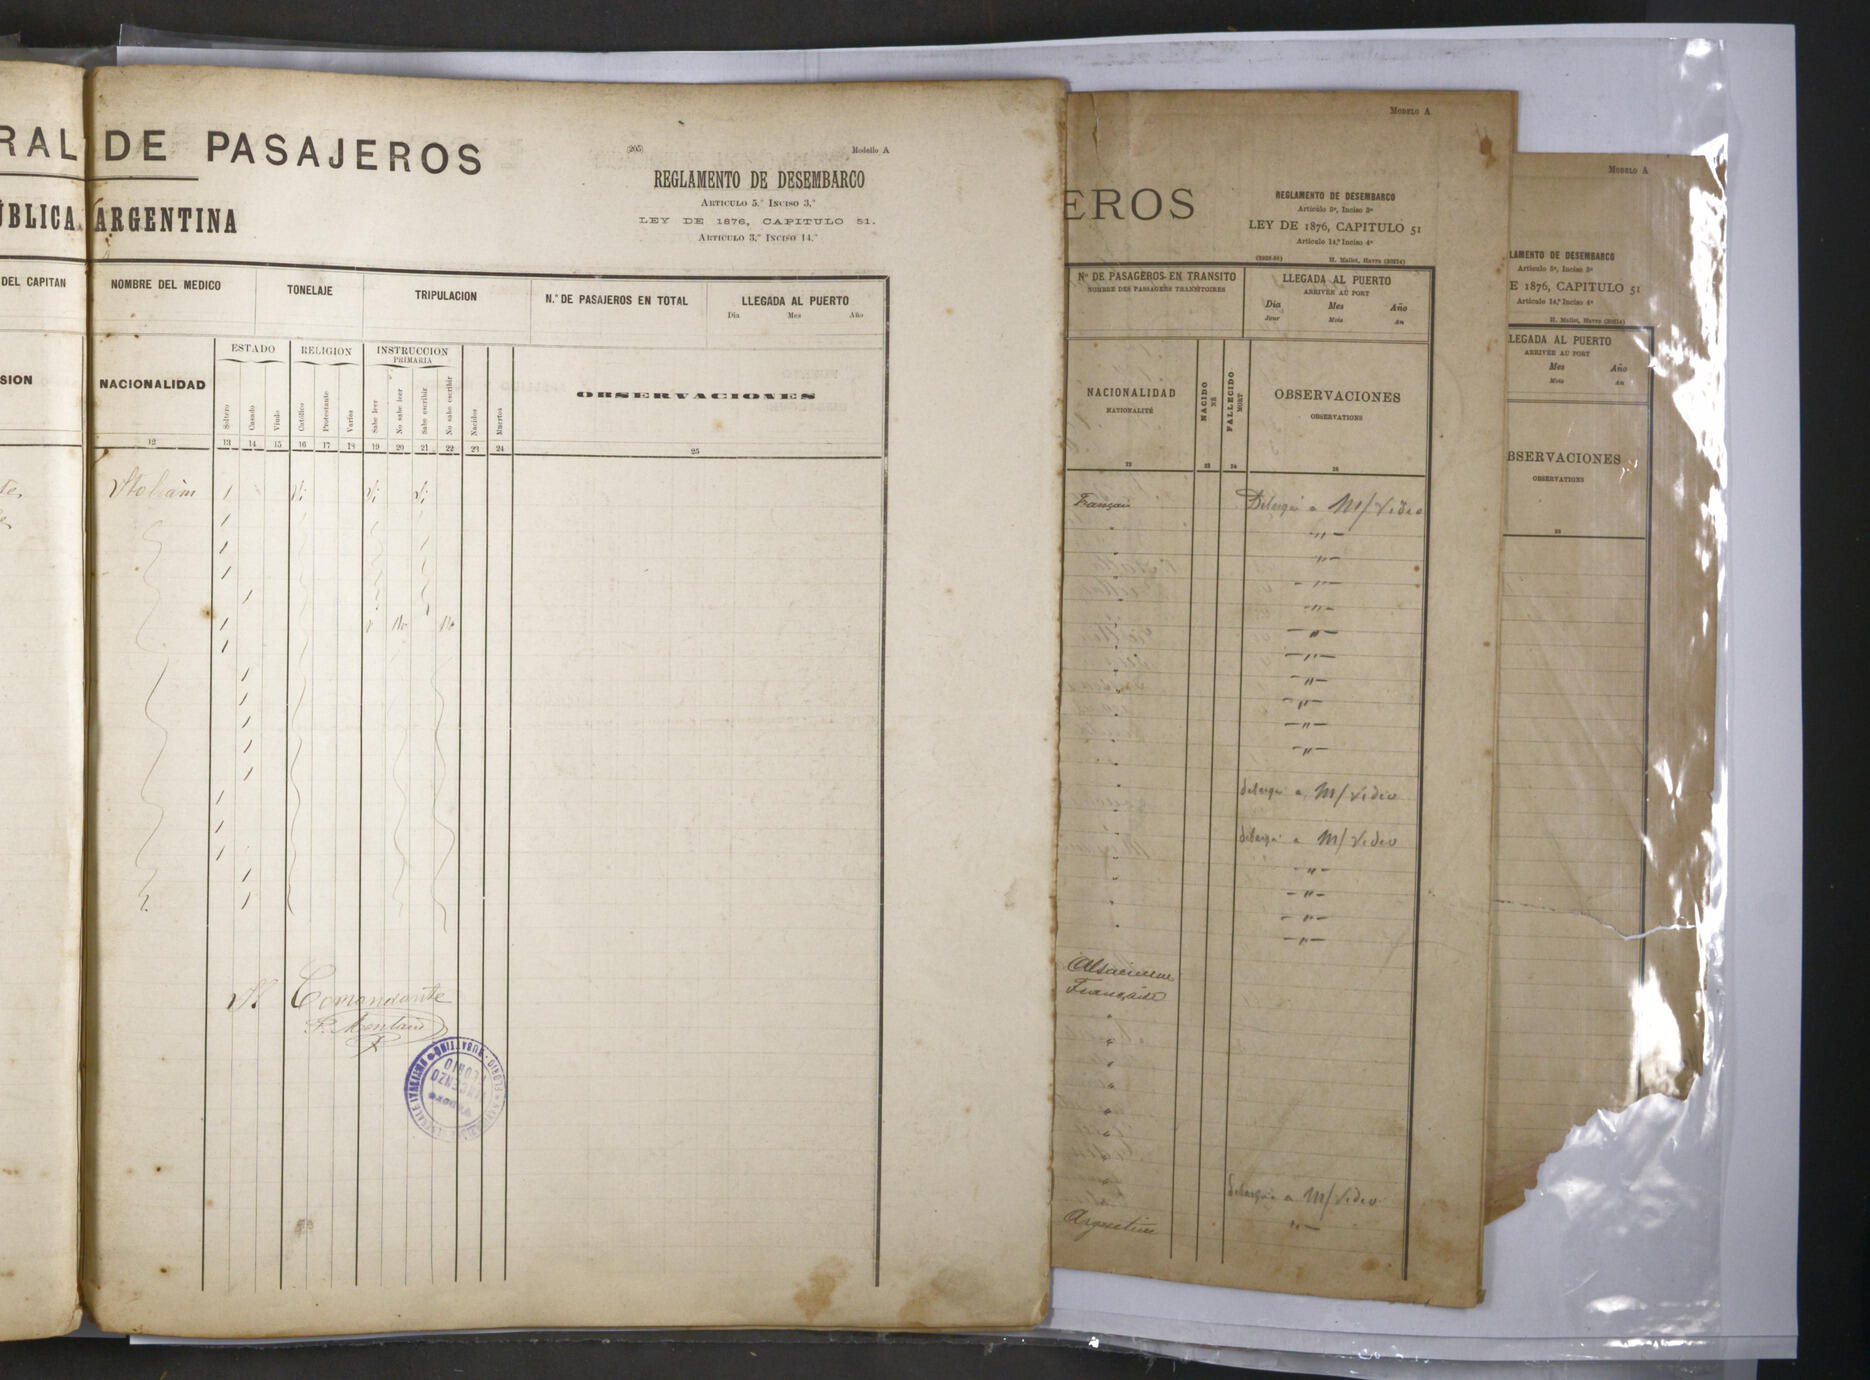 RAL DE PASAJEROS
ÚBLICA ARGENTINA
(205)
Modello A
REGLAMENTO DE DESEMBARCO
ARTICULO 5.° INCISO 3.°
LEY DE 1876, CAPITULO 51.
ARTICULO 3.° INCISO 14.°
DEL CAPITAN
NOMBRE DEL MEDICO
TONELAJE
TRIPULACION
N.° DE PASAJEROS EN TOTAL
LLEGADA AL PUERTO
Dia Mes Año
SION
NACIONALIDAD
ESTADO
RELIGION
INSTRUCCION
PRIMARIA
Soltero
Casado
Viudo
Católico
Protestante
Varios
Sabe leer
No sabe leer
Sabe escribir
No sabe escribir
Nacidos
Muertos
OBSERVACIONES
12 13 14 15 16 17 18 19 20 21 22 23 24 25
Si Si Si
No No
Il Comandante
MODELO A
EROS
REGLAMENTO DE DESEMBARCO
Artículo 5°, Inciso 3°
LEY DE 1876, CAPITULO 51
Artículo 14,° Inciso 4°
H. Mallet, Havre (20214)
N° DE PASAGEROS EN TRANSITO
NOMBRE DES PASSAGERS TRANSITOIRES
LLEGADA AL PUERTO
ARRIVÉE AU PORT
Dia Mes Año
Jour Mois An
NACIONALIDAD
NATIONALITÉ
NACIDO
NÉ
FALLECIDO
MORT
OBSERVACIONES
OBSERVATIONS
22 23 24
Français
a M/Video
"
"
"
"
"
"
"
"
"
"
a M/Video
a M/Video
"
"
"
"
Alsacienne
Française
a M/Video
"
Argentine
MODELO A
LAMENTO DE DESEMBARCO
Artículo 5°, Inciso 3°
E 1876, CAPITULO 51
Artículo 14,° Inciso 4°
H. Mallet, Havre (20214)
LEGADA AL PUERTO
ARRIVÉE AU PORT
Mes Año
Mois An
BSERVACIONES
OBSERVATIONS